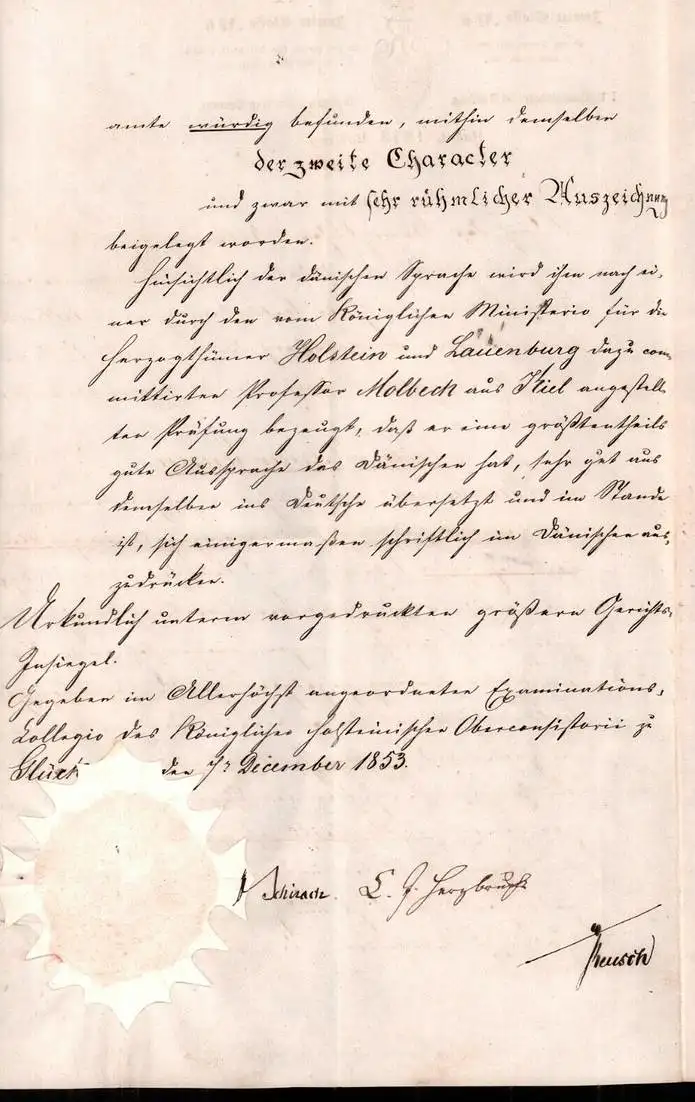 amte würdig befunden, mithin demselben
der zweite Character
und zwar mit sehr rühmlicher Auszeichnung
beigelegt worden.
Hinsichtlich der dänischen Sprache wird ihm nach ei-
ner durch den vom Königlichen Ministerio für die
Herzogthümer Holstein und Lauenburg dazu com-
mittirten Professor Molbech aus Kiel angestell-
ten Prüfung bezeugt, daß er eine größtentheils
gute Aussprache des Dänischen hat, sehr gut aus
demselben ins Deutsche übersetzt und im Stande
ist, sich einigermaßen schriftlich im Dänischen aus-
zudrücken.
Urkundlich unterm vorgedruckten größern Gerichts-
Insiegel.
Gegeben im Allerhöchst angeordneten Examinations-
Collegio des Königlichen Holsteinischen Oberconsistorii zu
Glück den 7t December 1853.
Schirach.